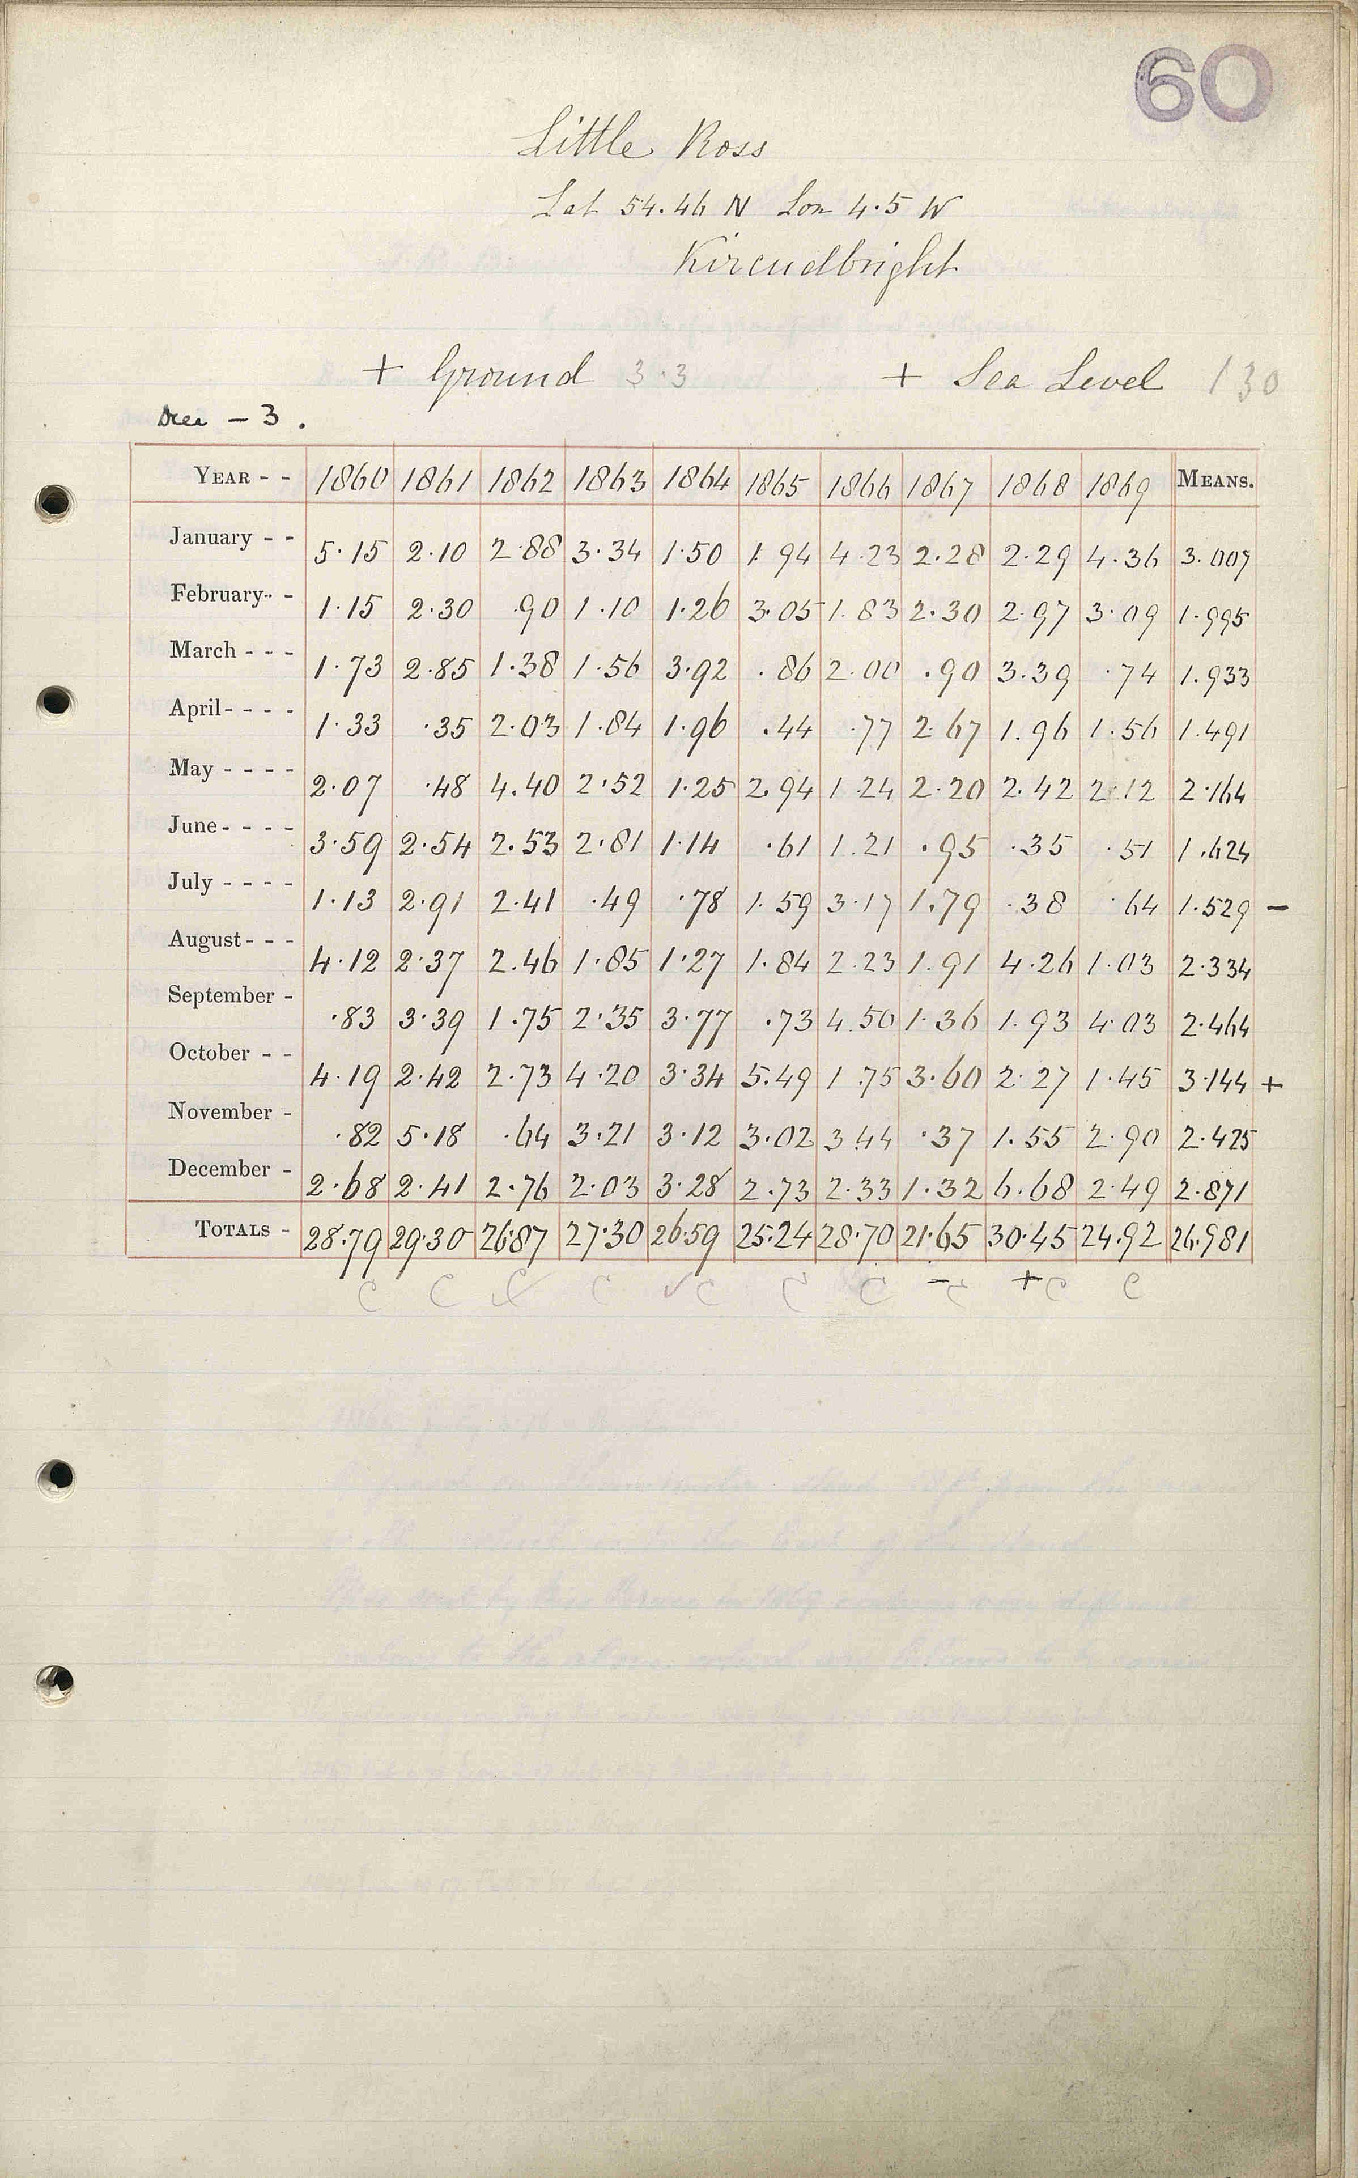 60
Little Ross
Lat 54.46 N Lon 4.5 W
Kircudbright
+ Ground 3.3 + Sea Level 130
Dia - 3.
YEAR - - 1860 1861 1862 1863 1864 1865 1866 1867 1868 1869 MEANS.
January - - 5.15 2.10 2.88 3.34 1.50 1.94 4.23 2.28 2.29 4.36 3.007
February - - 1.15 2.30 .90 1.10 1.26 3.05 1.83 2.30 2.97 3.09 1.995
March - - - 1.73 2.85 1.38 1.56 3.92 .86 2.00 .90 3.39 .74 1.933
April - - - - 1.33 .35 2.03 1.84 1.96 .44 .77 2.67 1.96 1.56 1.491
May - - - - 2.07 .48 4.40 2.52 1.25 2.94 1.24 2.20 2.42 2.12 2.164
June - - - - 3.59 2.54 2.53 2.81 1.14 .61 1.21 .95 .35 .51 1.624
July - - - - 1.13 2.91 2.41 .49 .78 1.59 3.17 1.79 .38 .64 1.529 -
August - - - 4.12 2.37 2.46 1.85 1.27 1.84 2.23 1.91 4.26 1.03 2.334
September - .83 3.39 1.75 2.35 3.77 .73 4.50 1.36 1.93 4.03 2.464
October - - 4.19 2.42 2.73 4.20 3.34 5.49 1.75 3.60 2.27 1.45 3.144 +
November - .82 5.18 .64 3.21 3.12 3.02 3.44 .37 1.55 2.90 2.425
December - 2.68 2.41 2.76 2.03 3.28 2.73 2.33 1.32 6.68 2.49 2.871
TOTALS - 28.79 29.30 26.87 27.30 26.59 25.24 28.70 21.65 30.45 24.92 26.981
C C C✓ C ✓C C C - C + C C